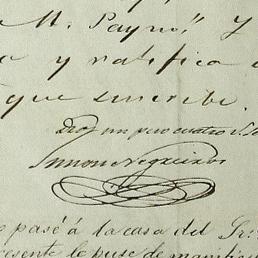 M. Payno." Y
y ratifica
que suscribe.
un peso cuatro
pasé á la casa del Sr.
presente le puse de manifies